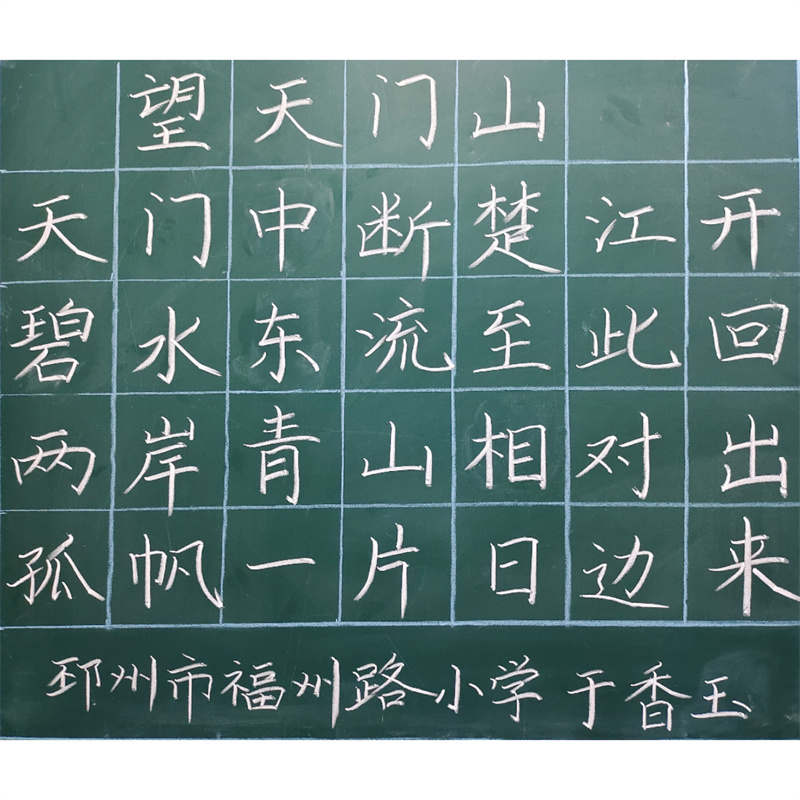 望天门山
天门中断楚江开
碧水东流至此回
两岸青山相对出
孤帆一片日边来
邳州市福州路小学于香玉